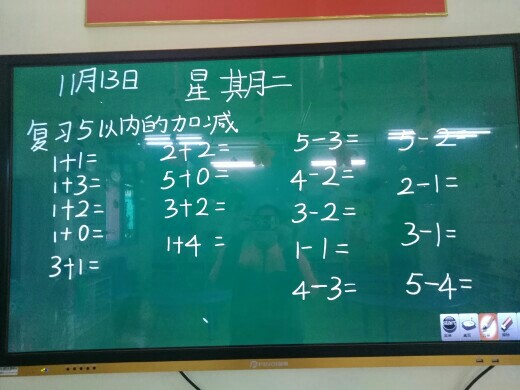 11月13日 星期二
复习5以内的加减
1+1= 2+2= 5-3= 5-2=
1+3= 5+0= 4-2= 2-1=
1+2= 3+2= 3-2= 3-1=
1+0= 1+4= 1-1= 5-4=
3+1= 4-3=